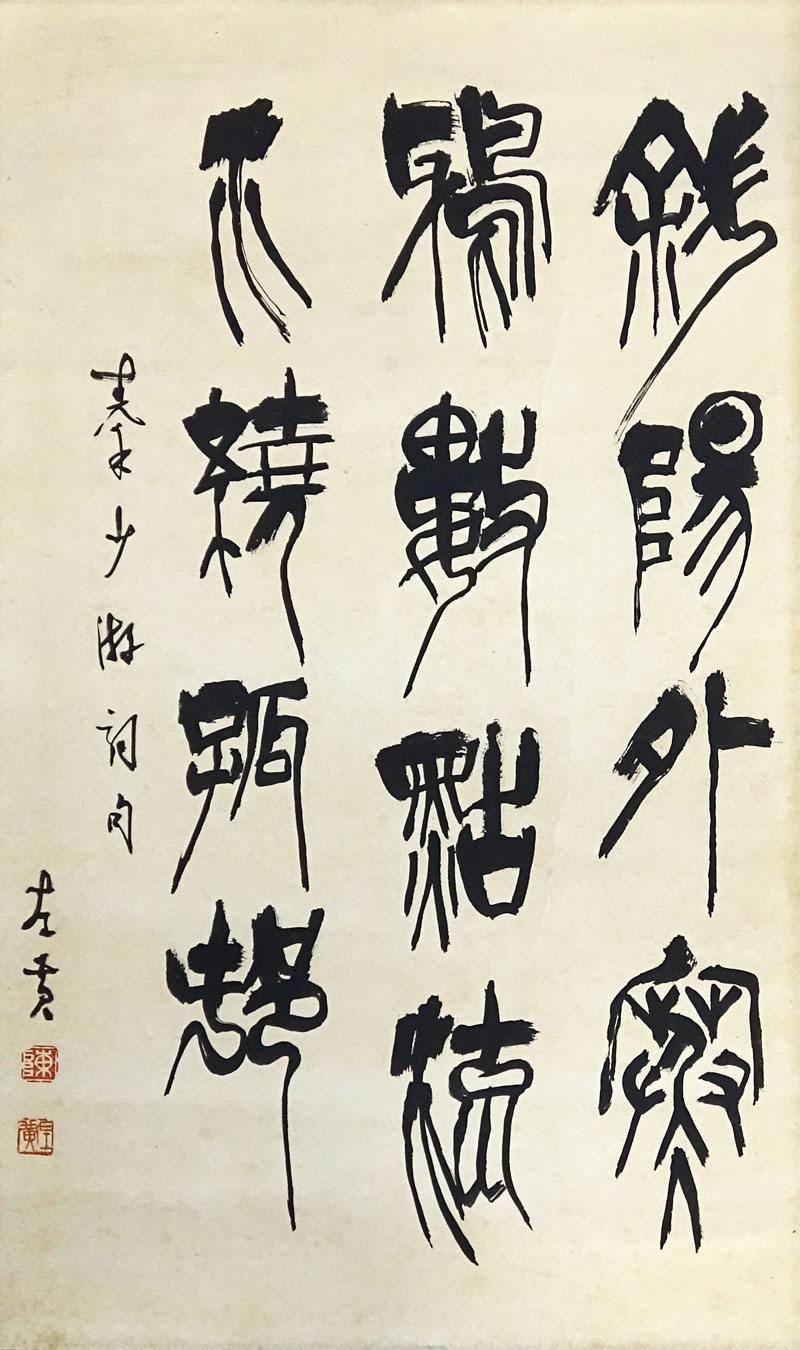 斜陽外寒
鴉數點流
水繞孤邨
秦少游詞句
左黄